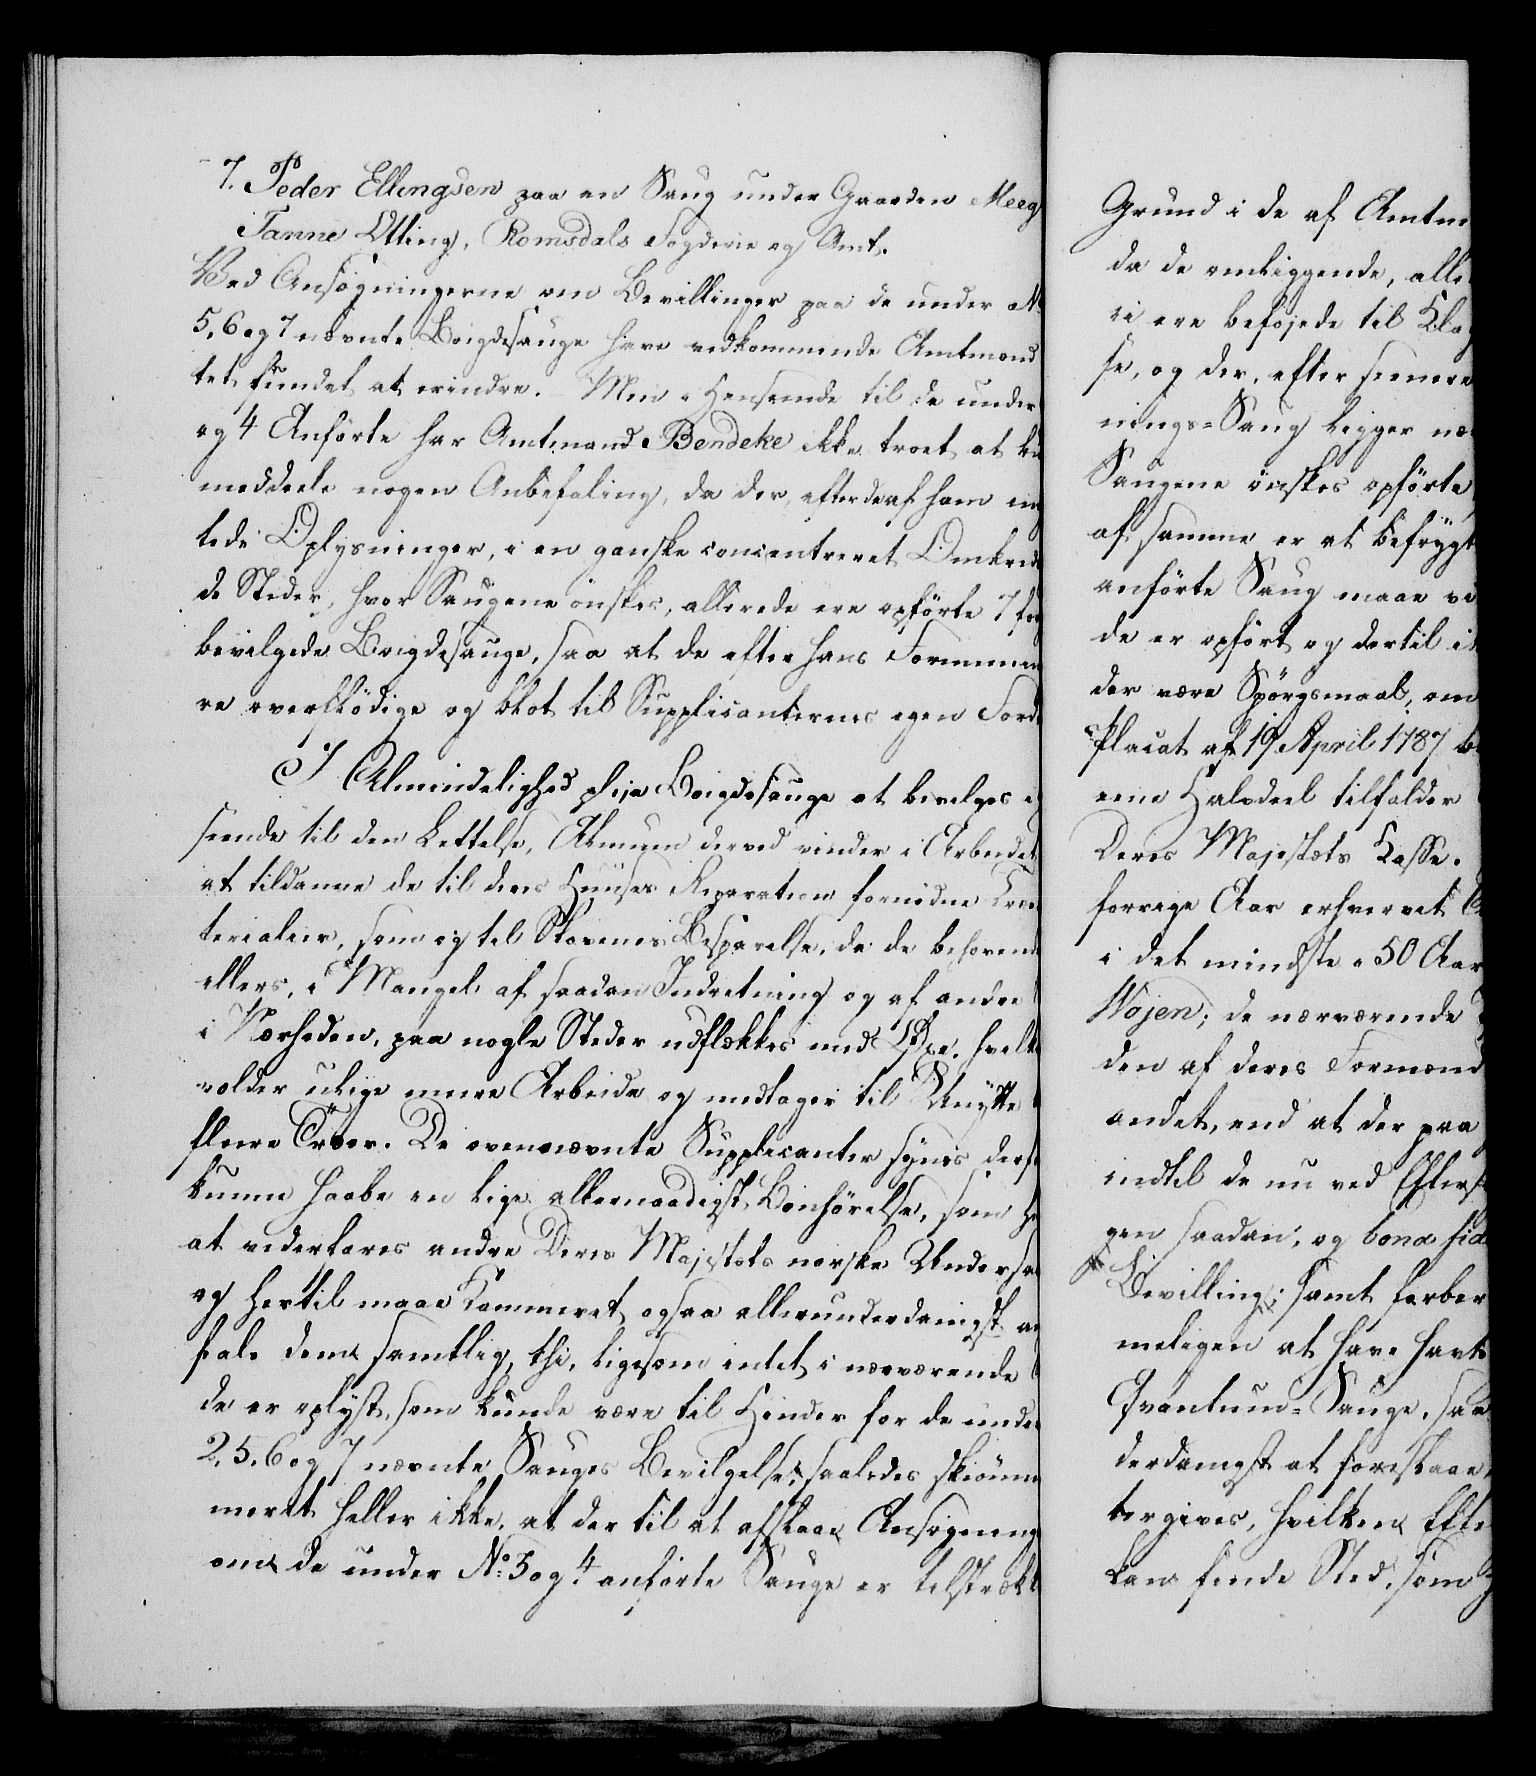 7. Peder Ellingsen paa en Saug under Gaarden Meeg
Tanne Otting, Romsdals Fogderie og Amt.
Ved Ansøgningerne om Bevillinger paa de under N
5, 6 og 7 nævnte Bøigdesauge have vedkommende Amtmænd
tet fundet at erindre. Men i Henseende til de under
og 4 Anførte har Amtmand Bendeke ikke troet at ku
meddeele nogen Anbefaling, da der, efter de af ham in
tede Oplysninger, i en ganske concentreret Omkreds
de Steder, hvor Saugene ønskes, allerede ere opførte 7 for
bevilgede Bøigdesauge, saa at de efter hans Formeen
re overflødige og blot til Supplicanternes egen Ford
I Almindelighed pleie Bøigdesauge at bevilges
seende til den Lettelse, Almuen derved vinder i Arbeidet
at tildanne de til deres Huuses Reparation fornødne Træ
terialier, som og til Skovenes Besparelse, da de behøvende
ellers, i Mangel af saadan Indretning og af andre
i Nærheden, paa nogle Steder udflækkes med Øxe, hvilk
volder ulige meere Arbeide og medtager til Unytte
fleere Træer. De ovennævnte Supplicanter synes derfo
kunne haabe en lige allernaadigst Bønhørelse, som h
at vederfares andre Deres Majestæts norske Undersaa
og hertil maae Kammeret ogsaa allerunderdanigst an
fale dem samtlig, thi, ligesom intet i nærværende
de er oplyst, som kunde være til Hinder for de under
2, 5, 6 og 7 nævnte Sauges Bevilgelse, saaledes skiønne
meret heller ikke, at der til at afslaae Ansøgning
om de under No. 3 og 4 anførte Sauge er tilstrækk
Grund i de af Amtm
da de omliggende, alle
ri ere beføjede til Kla
se, og der, efter seenere
nings-Saug ligger næ
Saugene ønskes opførte,
af samme er at befrygt
anførte Saug maae ve
de er opført og dertil i
der være Spørgsmaal, om
Placat af 19 April 1787 b
eene Halvdeel tilfalder
Deres Majestæts Casse.
forrige Aar erhvervet
i det mindste i 50 Aar
Wøjen; de nærværende
den af deres Formænd
andet, end at der paa
indtil de nu ved Efters
gen saadan, og bona fid
Bevilling; samt forber
meligen at have havt
Qvantum-Sauge, saa
derdanigst at foreslaae
tergives, hvilken Efte
kan finde Sted, som